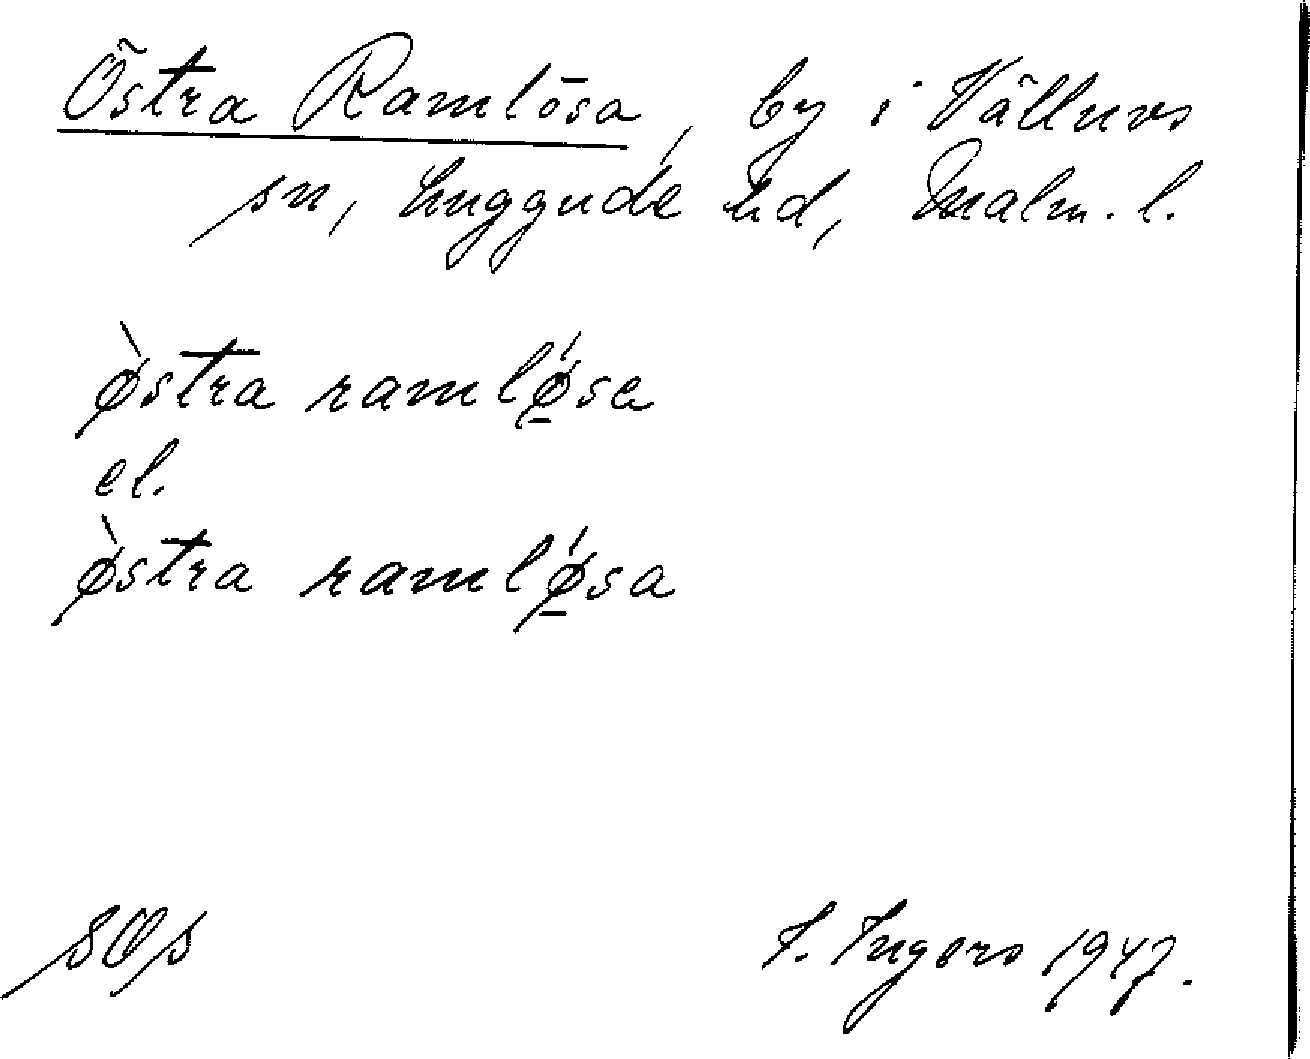 Östra Ramlösa, by i Välluvs
sn, Luggude hd, Malm. l.
ø̀stra ramlǿ̱sa
el.
ø̀stra ramlǿ̱sa
I. Ingers 1947.